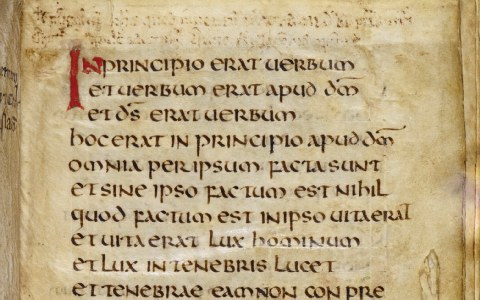 IN PRINCIPIO ERAT UERBUM
ET UERBUM ERAT APUD DM̄
ET DS̄ ERAT UERBUM
HOC ERAT IN PRINCIPIO APUD DM̄
OMNIA PER IPSUM FACTA SUNT
ET SINE IPSO FACTUM EST NIHIL
QUOD FACTUM EST IN IPSO UITA ERAT
ET UITA ERAT LUX HOMINUM
ET LUX IN TENEBRIS LUCET
ET TENEBRAE EAM NON CONPRE